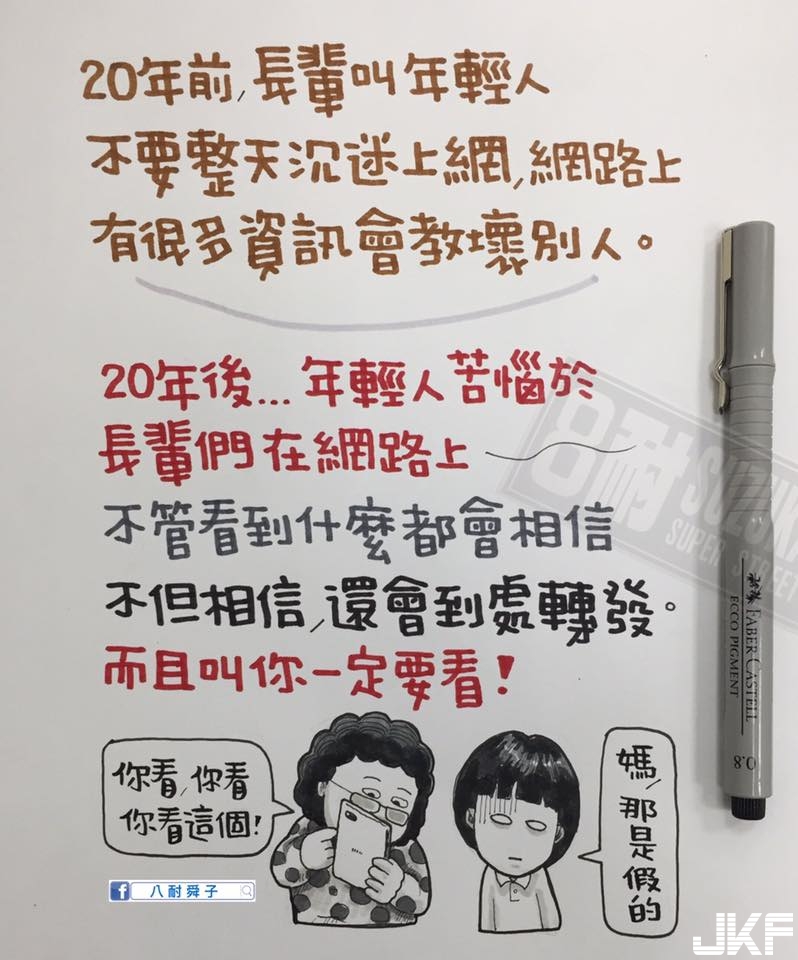 20年前,長輩叫年輕人
不要整天沉迷上網,網路上
有很多資訊會教壞別人。
20年後...年輕人苦惱於
長輩們在網路上
不管看到什麼都會相信
不但相信,還會到處轉發。
而且叫你一定要看!
你看,你看
你看這個!
媽,那是假的
八耐舜子
8耐 SUZUKA
SUPER STREET
FABER CASTELL
ECCO PIGMENT
0.8
JKF